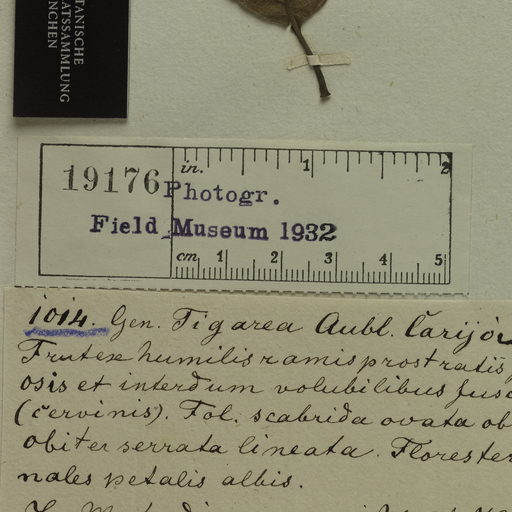 TANISCHE
ATSSAMMLUNG
NCHEN
19176
in. 1 2
Photogr.
Field Museum 1932
cm 1 2 3 4 5
1014. Gen. Tigarea Aubl. Carijó
Frutex humilis ramis prostratis
osis et interdum volubilibus fusc
(cervinis). Fol. scabrida ovata ob
obiter serrata lineata. Florester
nales petalis albis.